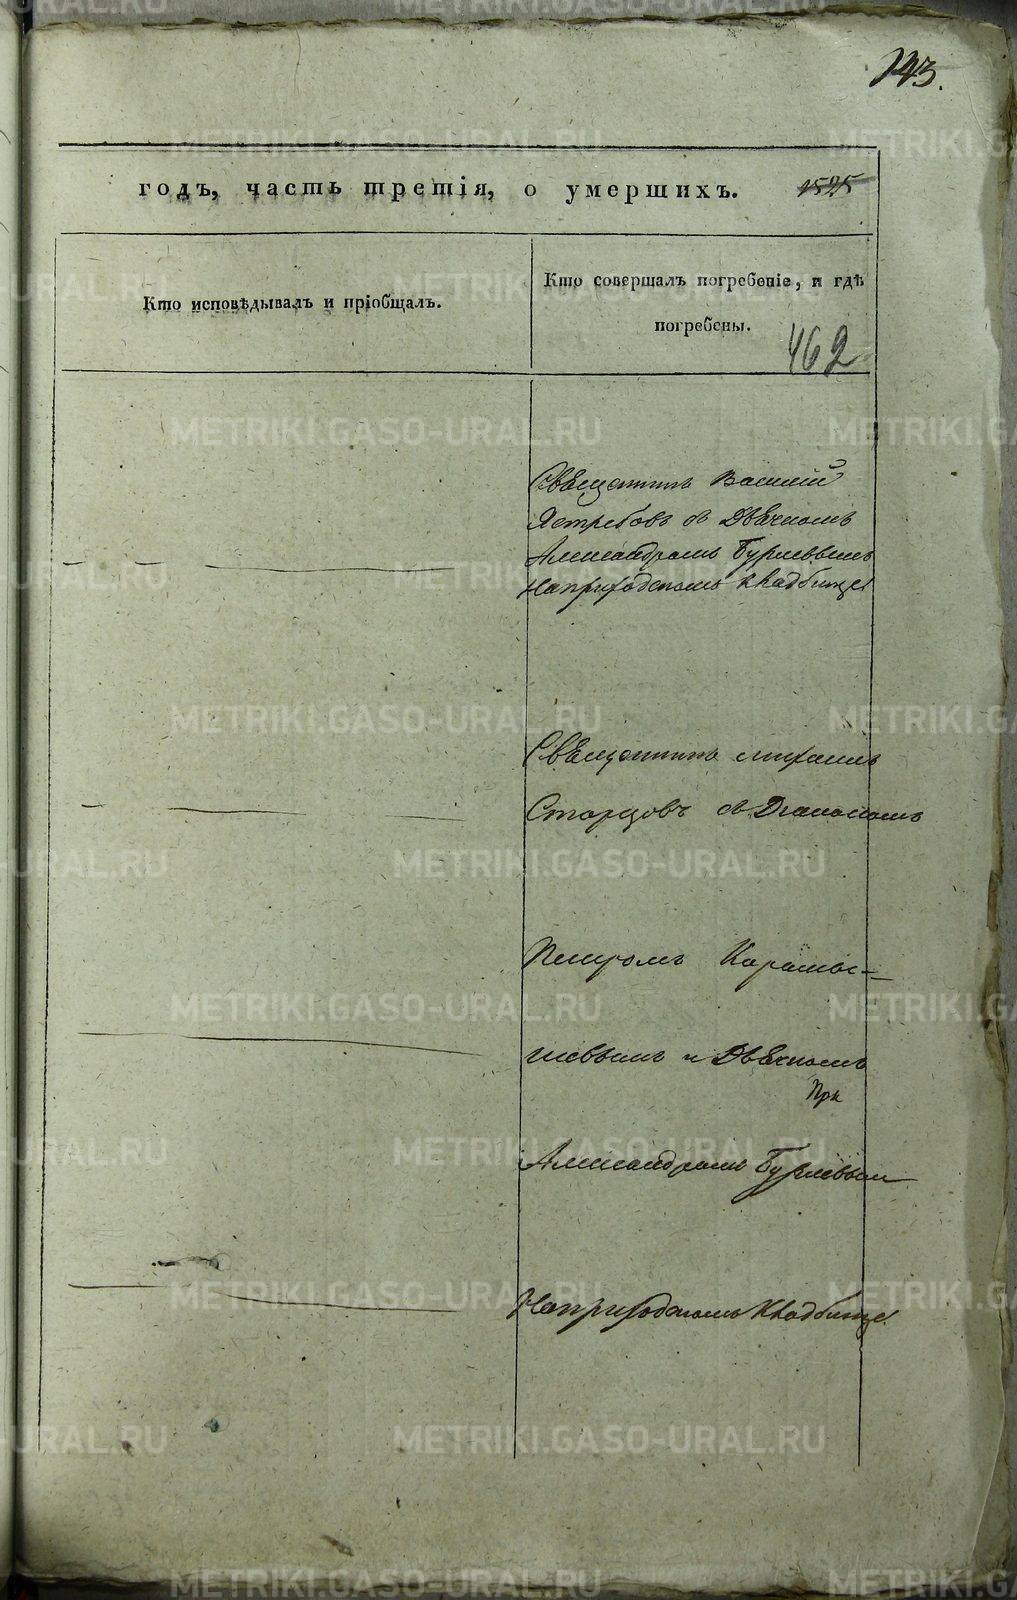 143.
годъ, часть третія, о умершихъ. 1525
Кто исповѣдывалъ и пріобщалъ.
Кто совершалъ погребеніе, и гдѣ
погребены.
462
Священникъ Василій
Ястребовъ съ Дьячкомъ
Александромъ Бурлевымъ
На приходскомъ кладбище
Священникъ Михаилъ
Старцовъ съ Діакономъ
Петромъ Карамы=
шевымъ и Дьячкомъ
При
Александромъ Бурлевым
На приходскомъ кладбище
METRIKI.GASO-URAL.RU